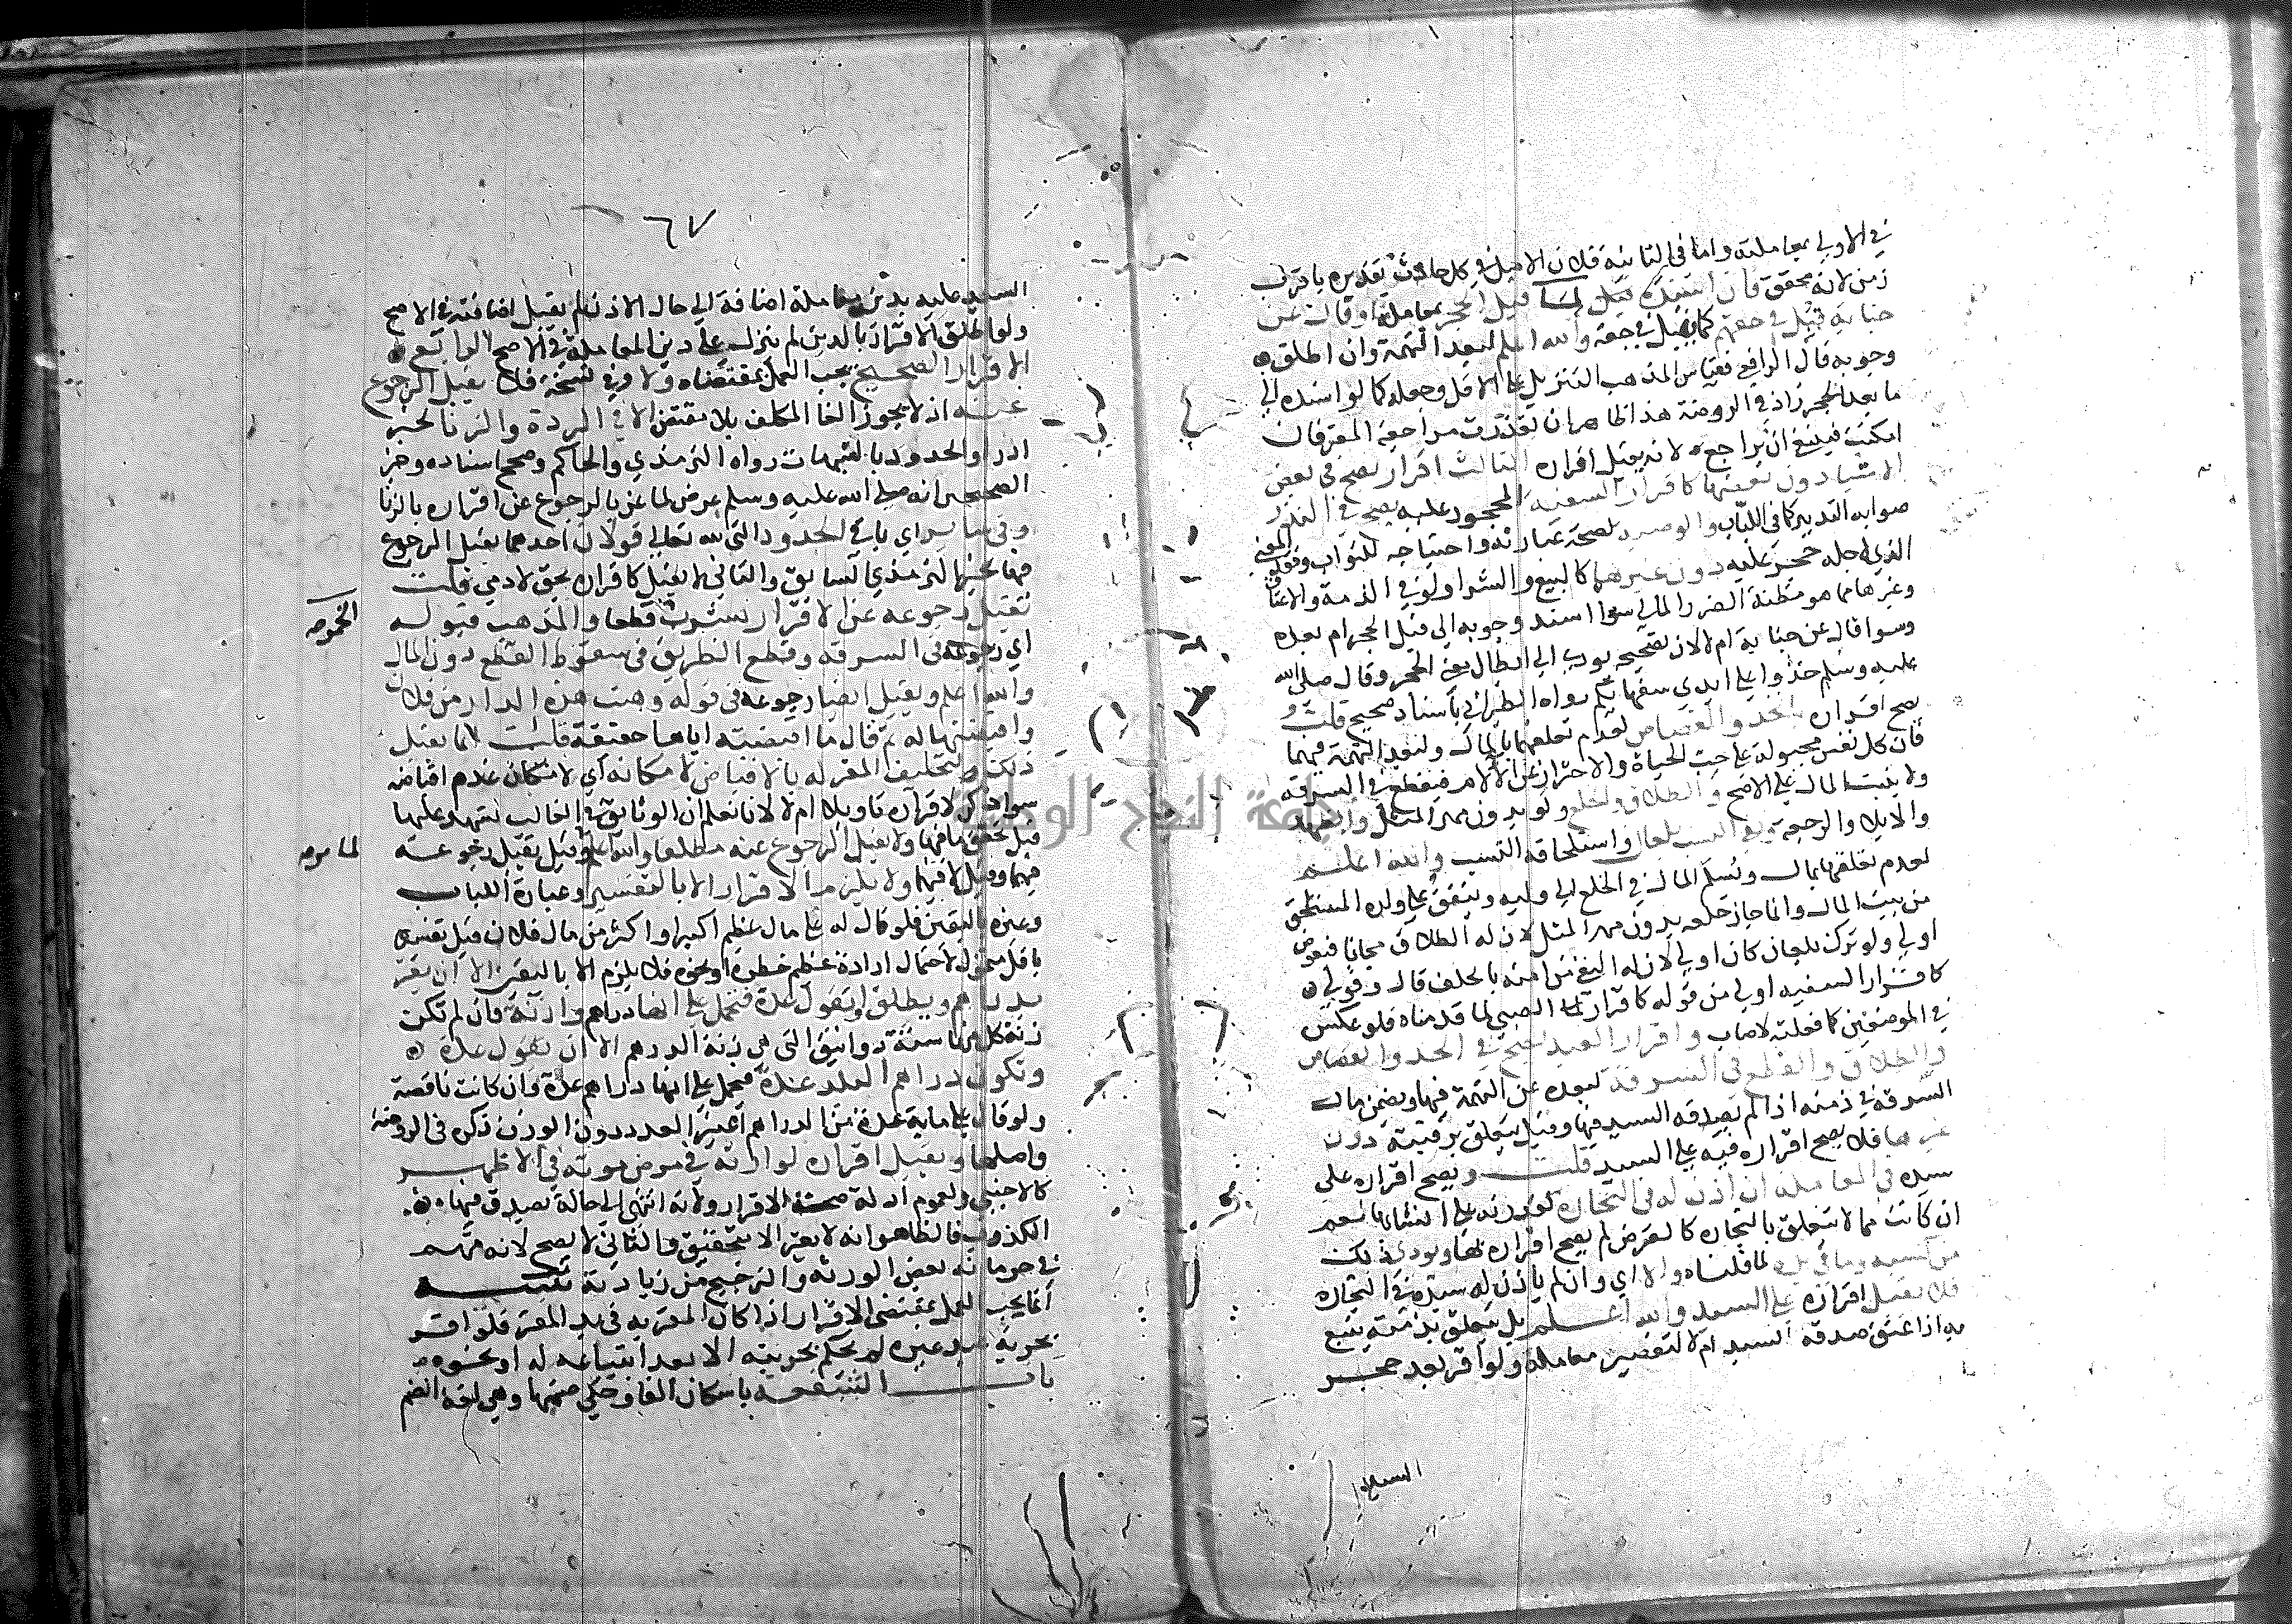 في الاولى بمعاملته واما في الثانية فلان الاصل في كل حادث تقديره باقرب
زمن لانه محقق فان اسنده قبل لما قبل الحجر بمعاملة او قال عن
جناية قبل في حقهم كما يقبل في حقه والله اعلم لبعد التهمة وان اطلق
وجوبه قال الرافعي فقياس المذهب التنزيل على الاقل وجعله كما لو اسنده الى
ما بعد الحجر زاد في الروضة هذا ظاهر ان تعذرت مراجعة المقر فان
امكنت فينبغي ان يراجع لانه يقبل اقراره الثالث اقرار يصح في بعض
الاشياء دون بعضها كاقرار السفيه المحجور عليه يصح في
صوابه التدبير كما في اللباب والوصية لصحة عبارته واحتياجه للثواب وفقد المعنى
الذي لاجله حجر عليه دون غيرهما كالبيع والشراء ولو في الذمة والاعتاق
وغيرها مما هو مظنة الضرر المالي سوا اسند وجوبه الى قبل الحجر ام بعده
وسوا قال عن جناية ام لا لان تصحيحه يودي الى ابطال معنى الحجر وقال صلى الله
عليه وسلم خذوا على ايدي سفهائكم رواه الطبراني باسناد صحيح قلت و
يصح اقراره بالحد والقصاص لعدم تعلقهما بالمال ولبعد التهمة فيهما
فان كل نفس مجبولة على حب الحياة والاحتراز عن الالام فيقطع في السرقة
ولا يثبت المال على الاصح والطلاق والخلع ولو بدون مهر المثل والظهار
والايلاء والرجعة ونفي النسب بلعان واستلحاقه النسب والله اعلم
لعدم تعلقها بمال ويسلم المال في الخلع الى وليه وينفق على ولده المستلحق
من بيت المال وانما جاز خلعه بدون مهر المثل لان له الطلاق مجانا فبعوض
اولى ولو ترك بلعان كان اولى لان له النفي من امته بالحلف قال وقولي
كاقرار السفيه اولى من قوله كاقرار الصبي لما قدمناه فلو عكس
في الموضعين كما فعلته لاصاب واقرار العبد يصح في الحد والقصاص
والطلاق والقطع في السرقة لبعده عن التهمة فيها ويضمن مال
السرقة في ذمته اذا لم يصدقه السيد فيها وقيل يتعلق برقبته دون
غيرها فلا يصح اقراره فيه على السيد قلت ويصح اقراره على
سيده في المعاملة ان اذن له في التجارة لقدرته على انشائها نعم
ان كانت مما لا يتعلق بالتجارة كالقرض لم يصح اقراره بها ويودى ذلك
من كسبه وما في يده لما قلناه والا اي وان لم ياذن له سيده في التجارة
فلا يقبل اقراره على السيد والله اعلم بل يتعلق بذمته يتبع
به اذا عتق صدقه السيد ام لا لتقصير معامله ولو اقر بعد حجر
السيد
٦٧
السيد عليه بدين معاملة اضافة الى حال الاذن لم يقبل اضافته في الاصح
ولو اطلق الاقرار بالدين لم ينزل على دين المعاملة في الاصح الرابع
الاقرار الصحيح يجب العمل بمقتضاه ولا وفي نسخة فلا يقبل الرجوع
عنه اذ لا يجوز الغا المكلف بلا مقتض الا في الردة والزنا لخبر
ادراوا الحدود بالشبهات رواه الترمذي والحاكم وصحح اسناده وخبر
الصحيحين انه صلى الله عليه وسلم عرض لماعز بالرجوع عن اقراره بالزنا
وفي سائر اي باقي الحدود التي لله تعالى قولان احدهما يقبل الرجوع
فيها لخبر الترمذي السابق والثاني لا يقبل كاقراره بحق لادمي قلت
يقبل رجوعه عن الاقرار بشرب قطعا والمذهب قبوله
اي رجوعه في السرقة وقطع الطريق في سقوط القطع دون المال
والله اعلم ويقبل ايضا رجوعه في قوله وهبت هذه الدار من فلان
واقبضتها له ثم قال ما اقبضته اياها حقيقة قلت انما يقبل
ذلك لتحليف المقر له بالاقباض لامكانه اي لامكان عدم اقباضه
سوا ذكر لاقراره تاويلا ام لا لانا نعلم ان الوثائق في الغالب يشهد عليها
قبل تحقق ما فيها ولا يقبل الرجوع عنه مطلقا والله اعلم وقيل يقبل رجوعه
فيها وقيل لا فيها ولا يلزم الاقرار الا بالتفسير وعبارة اللباب
وغيره باليقين فلو قال له علي مال عظيم او كبير او اكثر من مال فلان قبل تفسيره
باقل متمول لاحتمال ارادة عظم خطره او نحوه فلا يلزم الا باليقين الا ان يقر
بدراهم ويطلق او يقول عدة فتحمل على انها دراهم وازنة فان لم تكن
زنة كل منها ستة دوانيق التي هي زنة الدرهم الا ان يقول عدة
وتكون دراهم البلد عدة فتحمل على انها دراهم عدة وان كانت ناقصة
ولو قال علي ماية عدة من الدراهم اعتبر العدد دون الوزن ذكره في الروضة
واصلها ويقبل اقراره لوارثه في مرض موته في الاظهر
كالاجنبي ولعموم ادلة صحة الاقرار ولانه انتهى الى حالة يصدق فيها
الكذوب فالظاهر انه لا يقر الا بتحقيق والثاني لا يصح لانه متهم
في حرمانه بعض الورثة والترجيح من زيادته تنبيه
انما يجب العمل بمقتضى الاقرار اذا كان المقر به في يد المقر فلو اقر
بحرية عبد غيره لم يحكم بحريته الا بعد ابتياعه له او نحوه
باب الشفعة باسكان الفا وحكي ضمها وهي لغة الضم